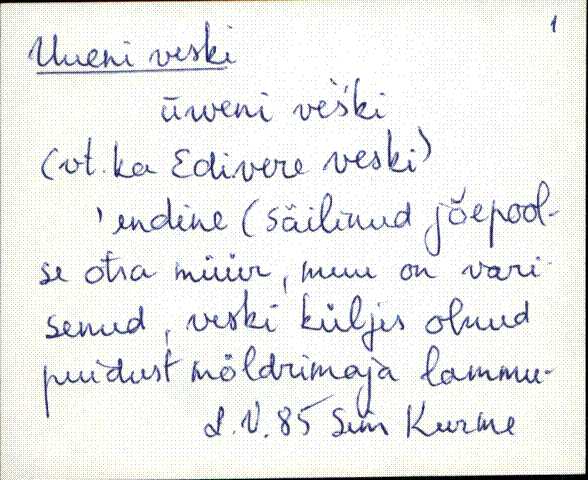 1
Uueni veski
ūweni vèški
(vt. ka Edivere veski)
'endine (säilinud jõepool-
se otsa müür, muu on vari-
senud, veski küljes olnud
puidust möldrimaja lammu-
L.V. 85 Sim Kurme